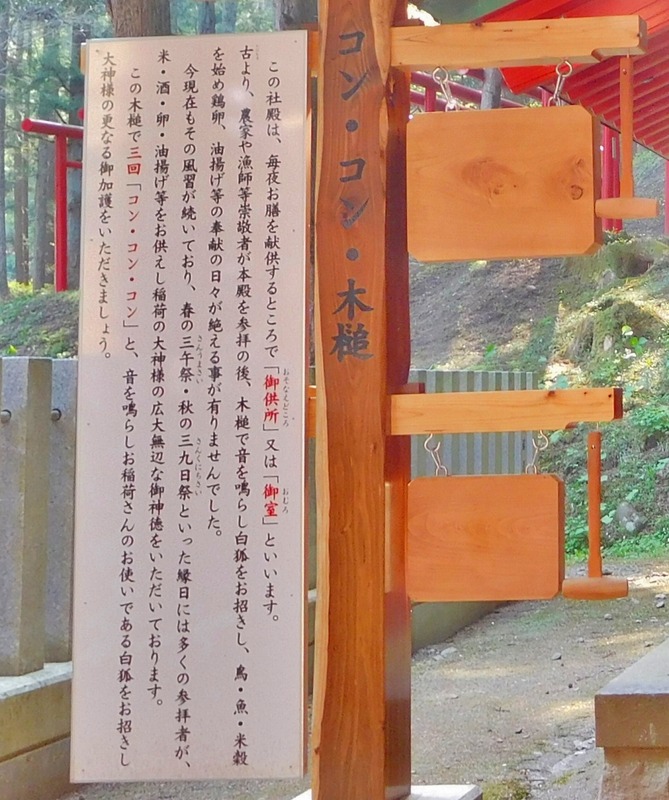 コン・コン・木槌
この社殿は、毎夜お膳を献供するところで「御供所」又は「御室」といいます。
古より、農家や漁師等崇敬者が本殿を参拝の後、木槌で音を鳴らし白狐をお招きし、鳥・魚・米穀
を始め鶏卵、油揚げ等の奉献の日々が絶える事が有りませんでした。
今現在もその風習が続いており、春の三午祭・秋の三九日祭といった縁日には多くの参拝者が、
米・酒・卵・油揚げ等をお供えし稲荷の大神様の広大無辺な御神徳をいただいております。
この木槌で三回「コン・コン・コン」と、音を鳴らしお稲荷さんのお使いである白狐をお招きし
大神様の更なる御加護をいただきましょう。
おそなえどころ
おむろ
さんうまさい
さんくにちさい